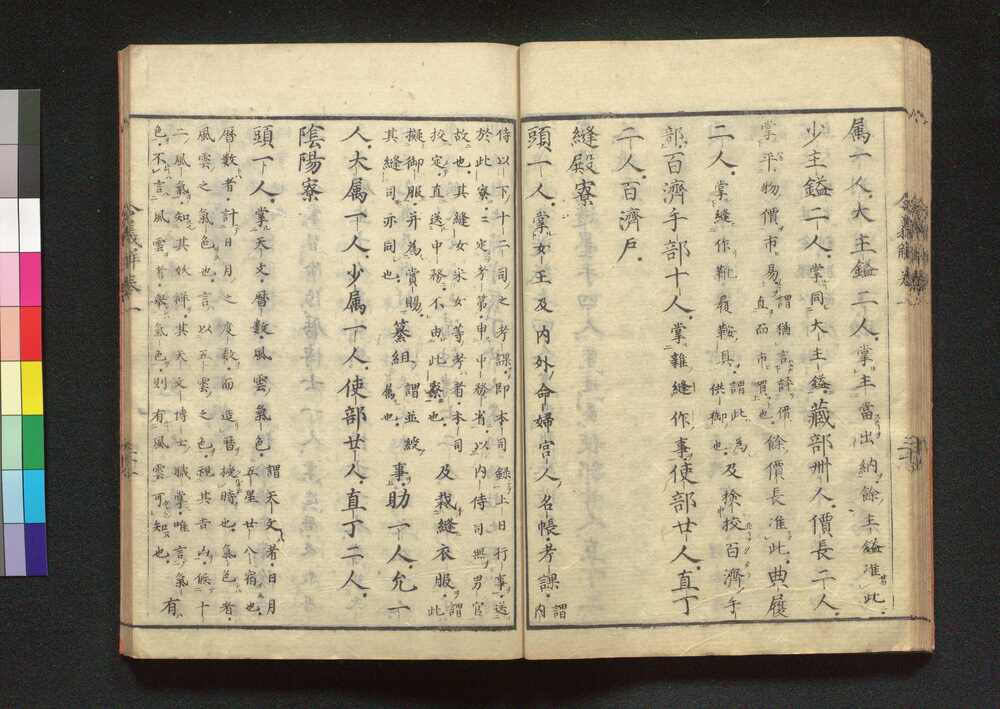 属一人大主鎰二人掌主當出納餘主鎰准此
少主鎰二人掌同大主鎰藏部卅人價長二人
掌平物價市易謂猶言評價直而市買也餘價長准此典履
二人掌縫作靴履鞍具謂此為供御也及撿挍百濟手
部百濟手部十人掌雜縫作事使部廿人直丁
二人百濟戶
縫殿寮
頭一人掌女王及内外命婦宮人名帳考課謂内
侍以下十二司之考課即本司録上日行事送
於此寮寮定考第申中務省以内侍司興男官
故也其縫女采女等考者本司
挍定直送中務不由此寮也及裁縫衣服謂此
擬御服并為賞賜
其縫司亦同也纂組謂並綬属也事助一人允一
人大属一人少属一人使部廿人直丁二人
陰陽寮
頭一人掌天文曆數風雲氣色謂天文者日月五星廿八宿也
曆數者計日月之度数而造曆授時也氣色者
風雲之氣色也言以五雲之色視其吉凶候十
二風氣知其妖祥其天文博士職掌唯言氣
色不言風雲者擧氣色則有風雲可知也有
令義解卷一